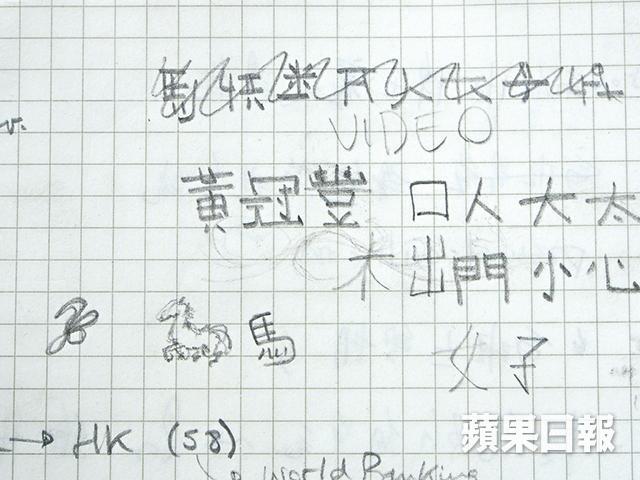 VIDEO
黃冠豐 口人大太
木出門小心
馬
女子
→ HK (58)
World Banking
蘋果日報